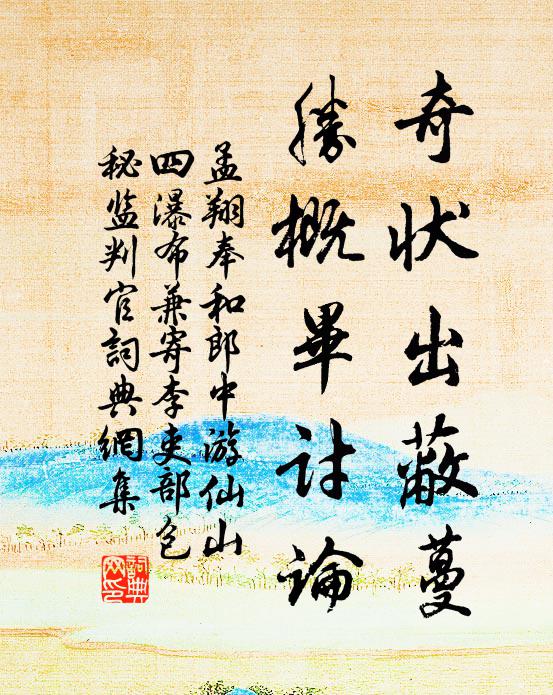 奇状出蔽蔓
勝概畢討論
孟翔奉和郎中游仙山
四瀑布兼寄李吏部包
秘监判官詞典網集
詞典网印